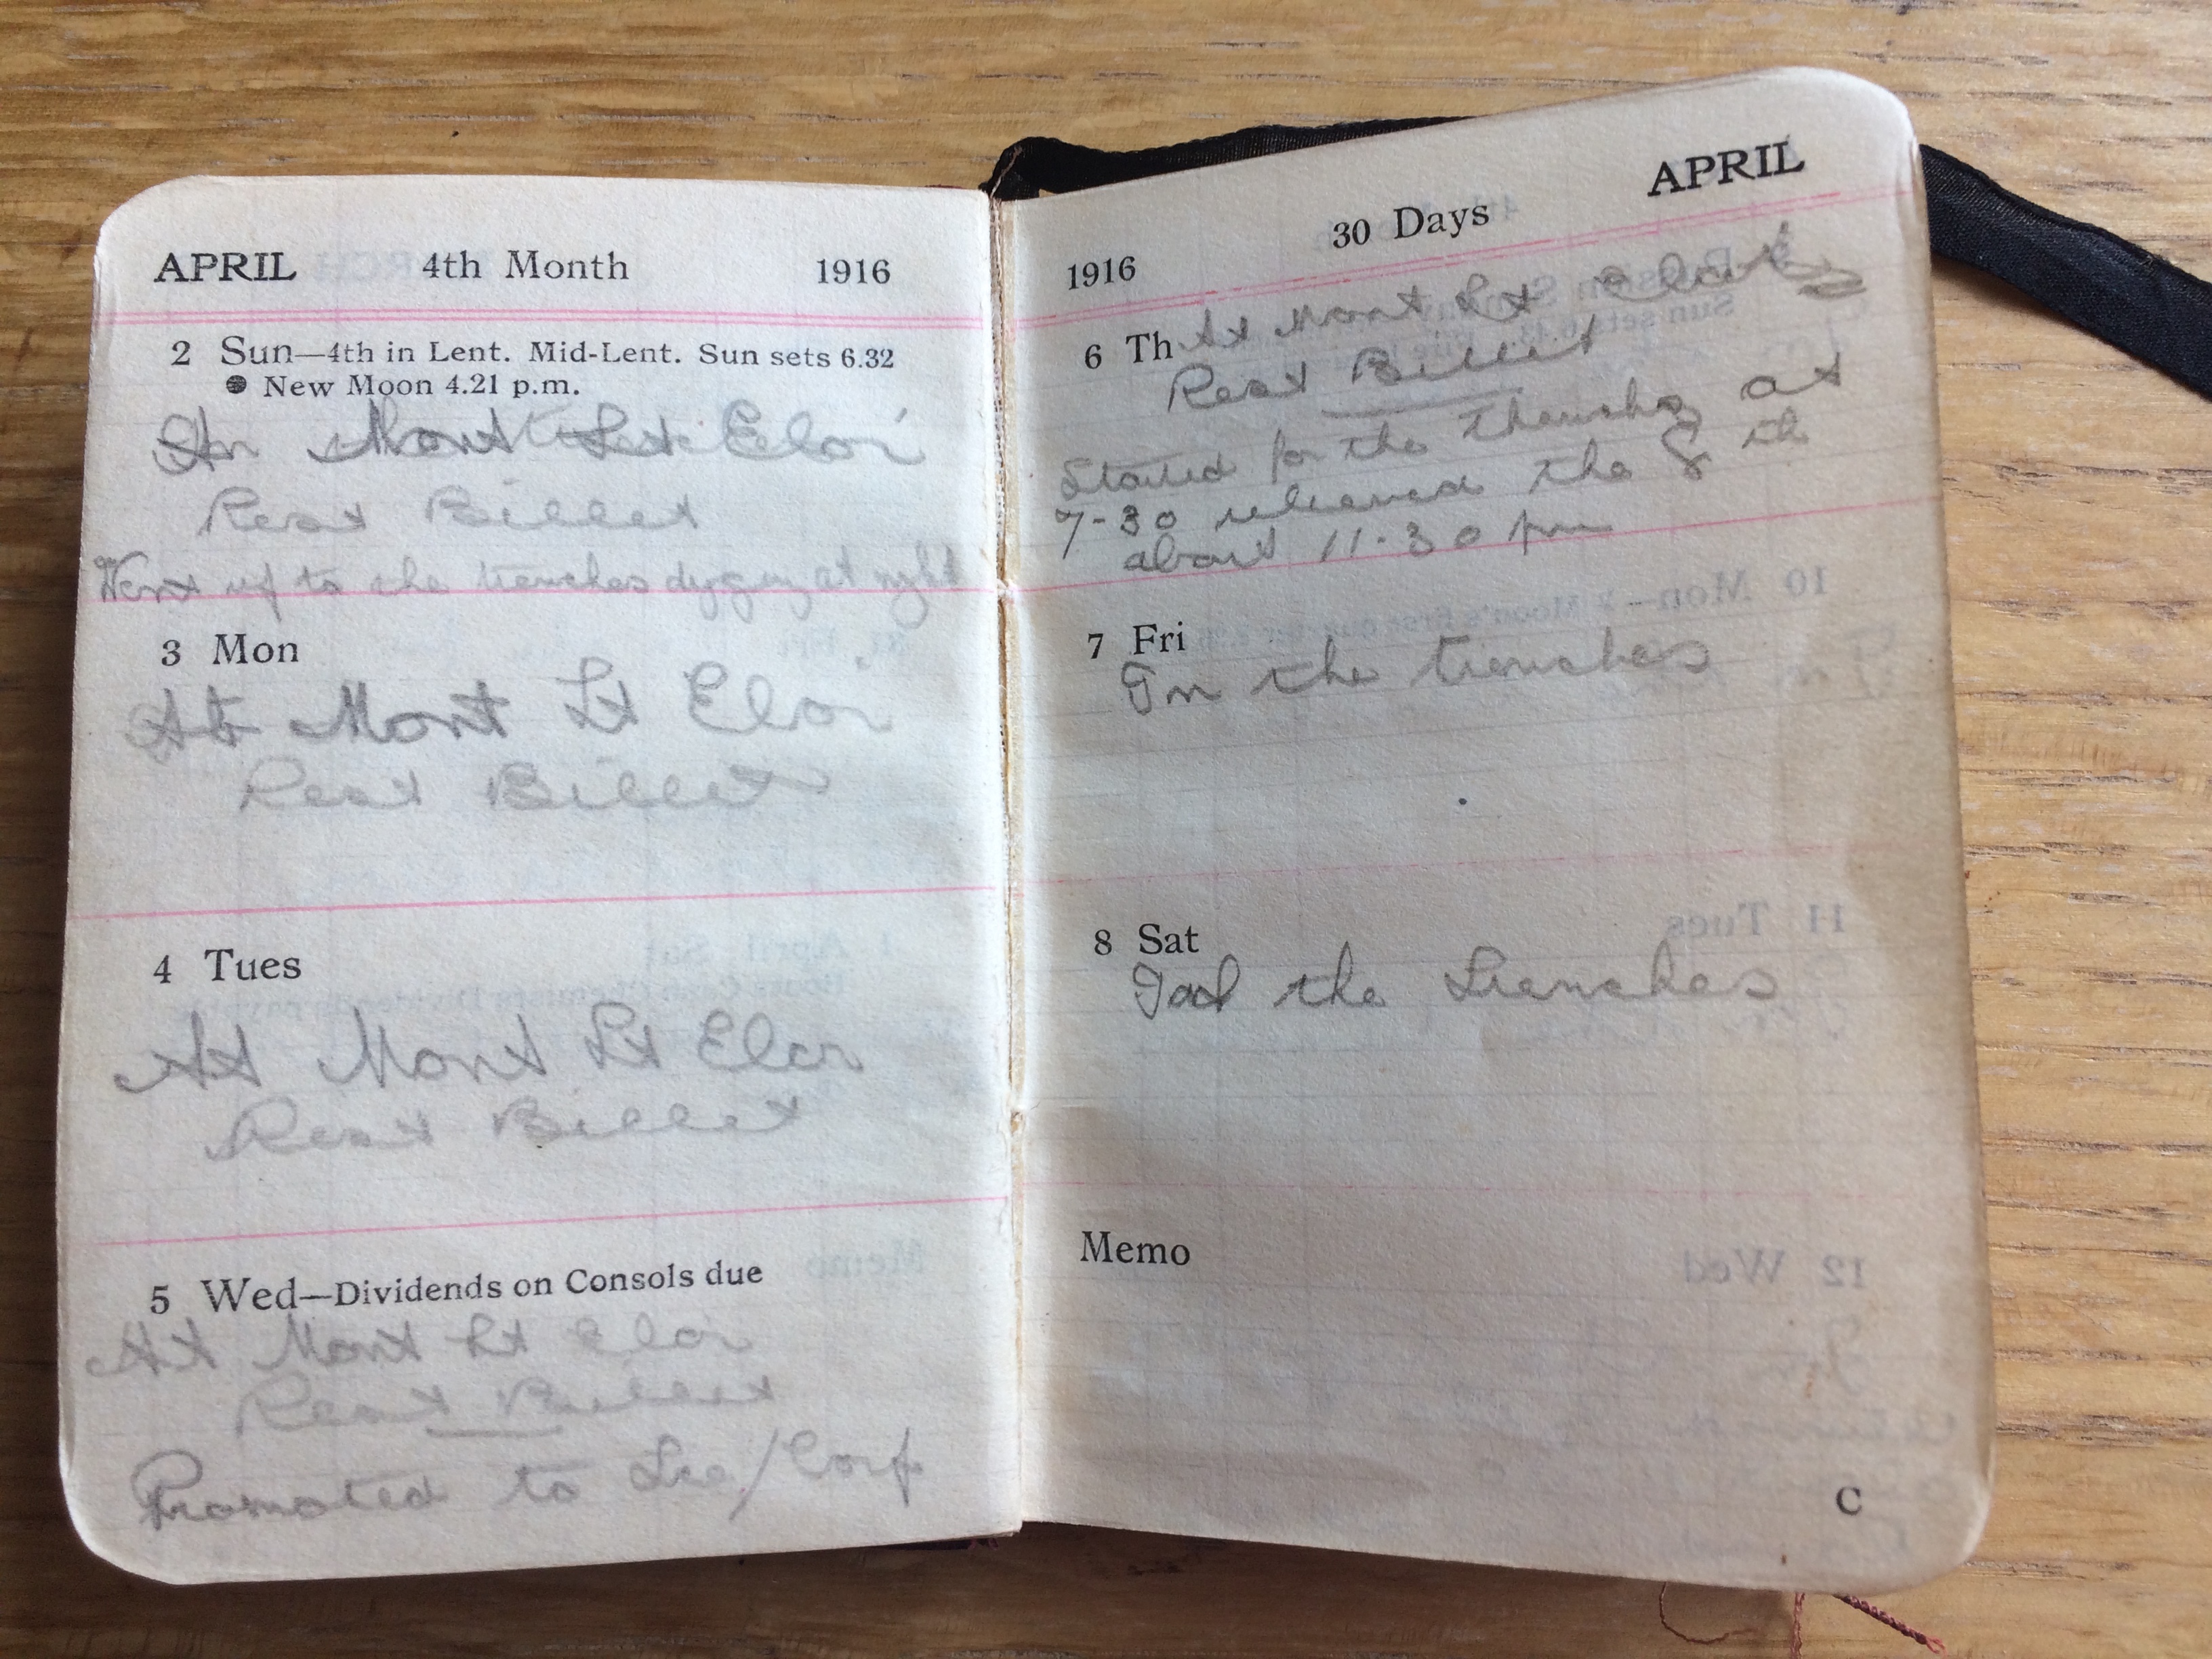 APRIL 4th Month 1916
2 Sun—4th in Lent. Mid-Lent. Sun sets 6.32
New Moon 4.21 p.m.
Mont St Eloi
Rest Billet
Went up to the trenches digging at night
3 Mon
At Mont St Eloi
Rest Billet
4 Tues
At Mont St Eloi
Rest Billet
5 Wed—Dividends on Consols due
At Mont St Eloi
Rest Billet
Promoted to Lce/Corp
1916 30 Days APRIL
6 Th At Mont St Eloi
Rest Billet
Started for the trenches at
7-30 relieved the 8 th
about 11.30 pm
7 Fri
In the trenches
8 Sat
the trenches
Memo
C